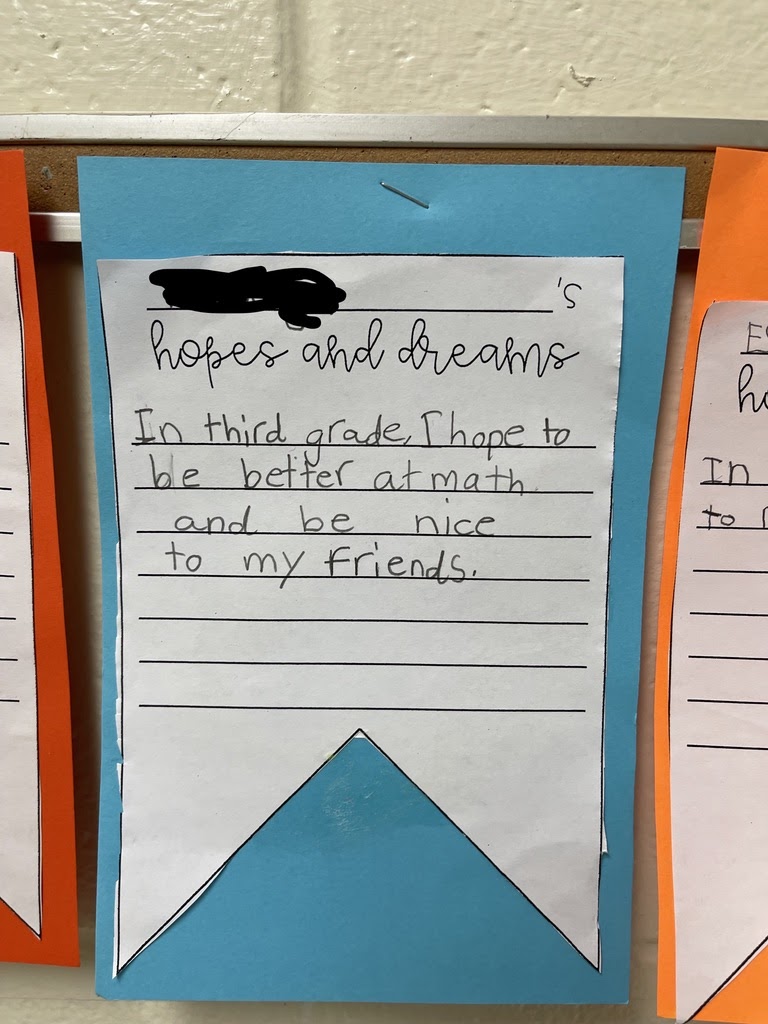 's
hopes and dreams
In third grade, I hope to
be better at math
and be nice
to my friends.
In
to